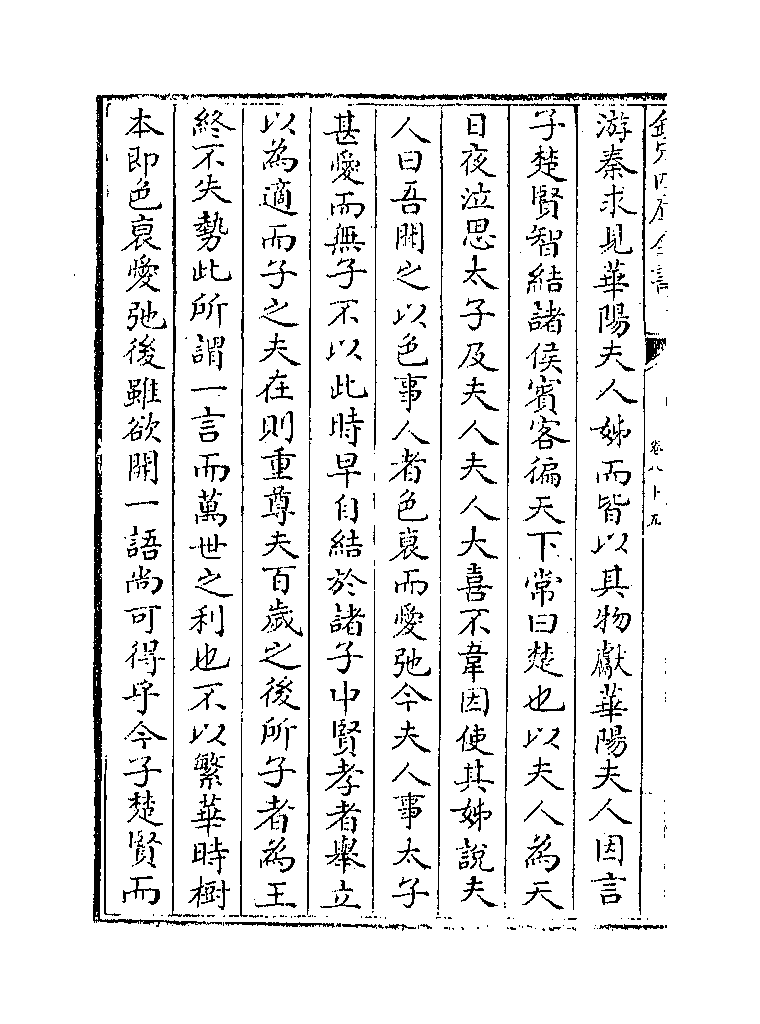 游秦求見華陽夫人姊而皆以其物獻華陽夫人因言
子楚賢智結諸侯賓客徧天下常曰楚也以夫人為天
日夜泣思太子及夫人夫人大喜不韋因使其姊說夫
人曰吾聞之以色事人者色衰而愛弛今夫人事太子
甚愛而無子不以此時早自結於諸子中賢孝者舉立
以為適而子之夫在則重尊夫百歲之後所子者為王
終不失勢此所謂一言而萬世之利也不以繁華時樹
本即色衰愛弛後雖欲開一語尚可得乎今子楚賢而